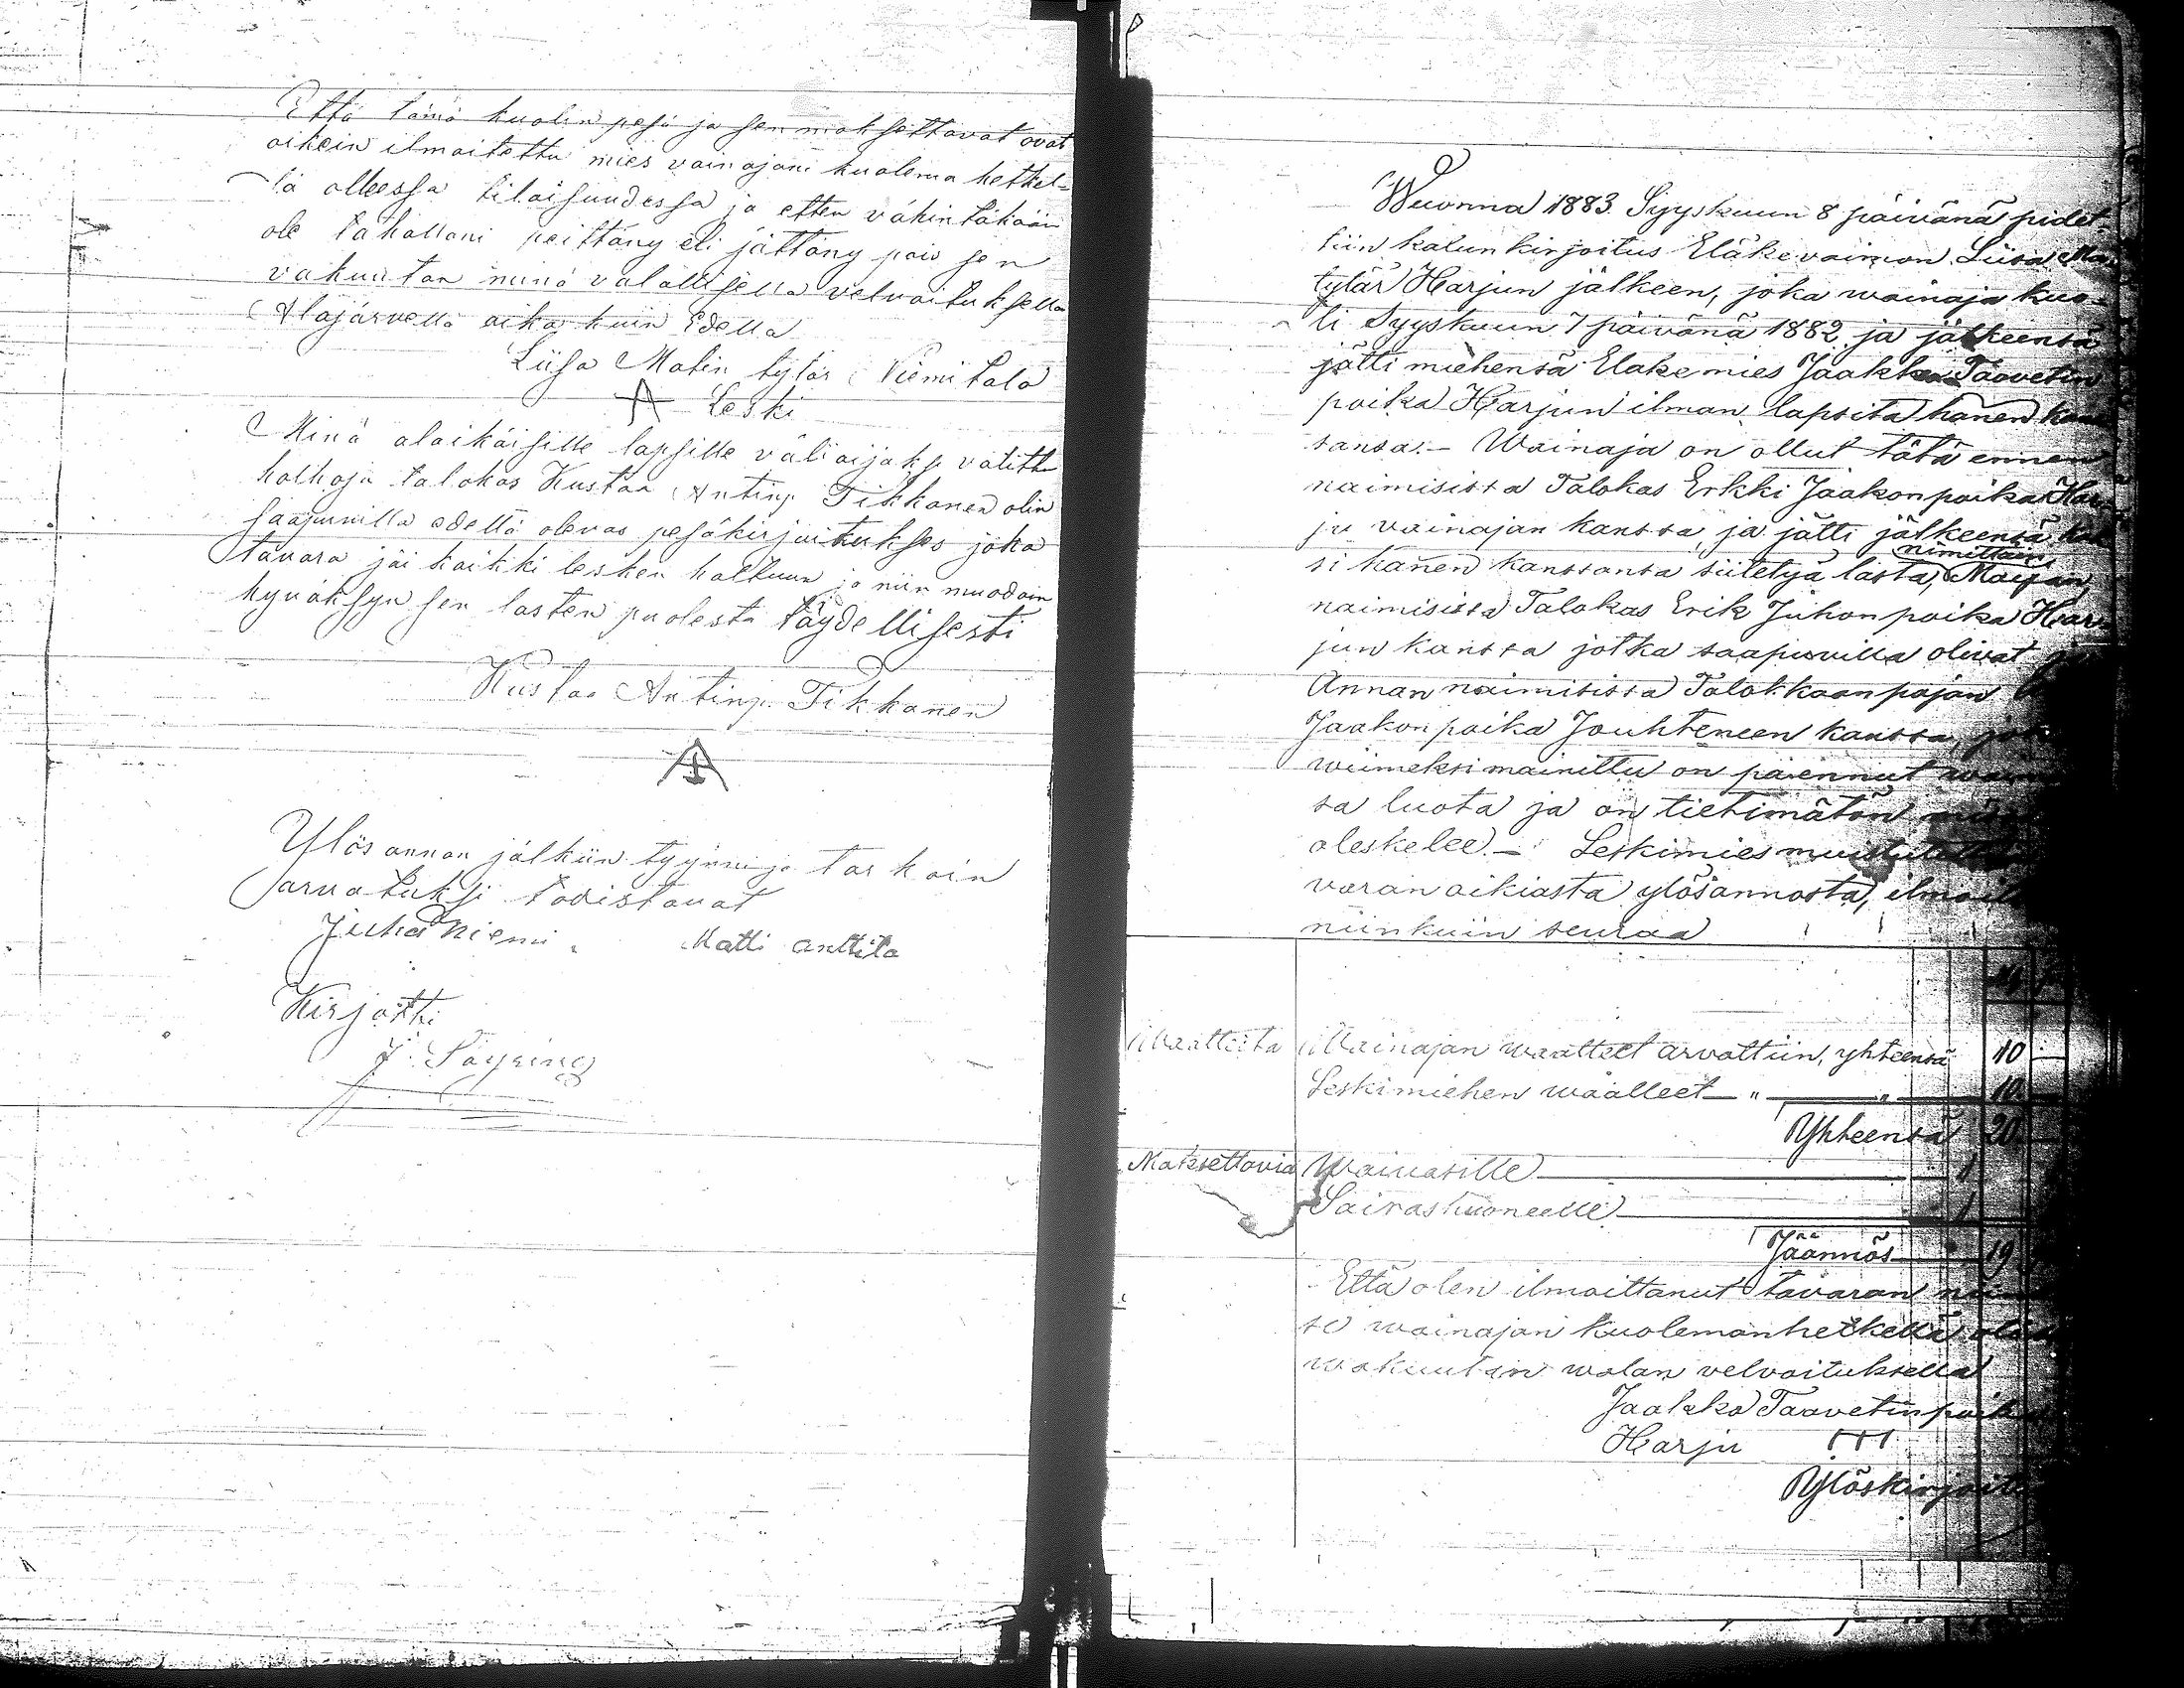 Että tämä kuolin pesä ja sen maksettavat ovat
oikein ilmoitettu mies vainajani kuolema hetkel-
lä olleessa tilaisuudessa ja etten vähintäkään
ole tahallani peittäny eli jättäny pois sen
vakuutan minä valallisella velvoituksella
Alajärvellä aika kuin Edellä
Liisa Matin tytär Niemitalo
Leski
Minä alaikäisille lapsille väliaijaksi valittu
holhoja talokas Kustaa Antinp. Tikkanen olin
saapuvilla edellä olevas pesäkirjoitukses joka
tavara jäi kaikki lesken haltuun ja niin muodoin
hyväksyn sen lasten puolesta täydellisesti
Kustaa Antinp. Tikkanen
Ylös annon jälkiin tyynni ja tarkoin
arvatuksi todistavat
Juha Niemi. Matti anttila
Kirjotti
J.
Wuonna 1883 Syyskuun 8 päivänä pidet-
tiin kalunkirjoitus Eläkevaimon Liisa
tytär Harjun jälkeen, joka wainaja kuo-
li Syyskuun 7 päivänä 1882 ja jälkeensä
jätti miehensä Eläkemies Jaakko Taavetin
poika Harjun ilman lapsita hänen
sansa. – Wainaja on ollut tätä ennen
naimisissa Talokas Erkki Jaakonpoika Har-
ju vainajan kanssa, ja jätti jälkeensä
nimittäin
si hänen kanssansa siitetyä lasta, Maijan
naimisissa Talokas Erik Juhonpoika Har-
jun kanssa jotka saapuvilla olivat
Annan naimisissa Talokkaanpojan
Jaakonpoika Jouhteneen kanssa,
wiimeksimainittu on paennut
sa luota ja on tietimätön
oleskelee. – Leskimies
varan oikiasta ylösannosta,
niinkuin seuraa
Waatteita Wainajan waatteet arvattiin, yhteensä 10
Leskimiehen waatteet – " – " – 10
Yhteensä 20
Maksettavia Waivasille 1
Sairashuoneelle 1
Jäännös 19
Että olen ilmoittanut tavaran
se wainajan kuolemanhetkellä
wakuutan walan velvoituksella
Jaakko Taavetinpoika
Harju
Ylöskirjoit